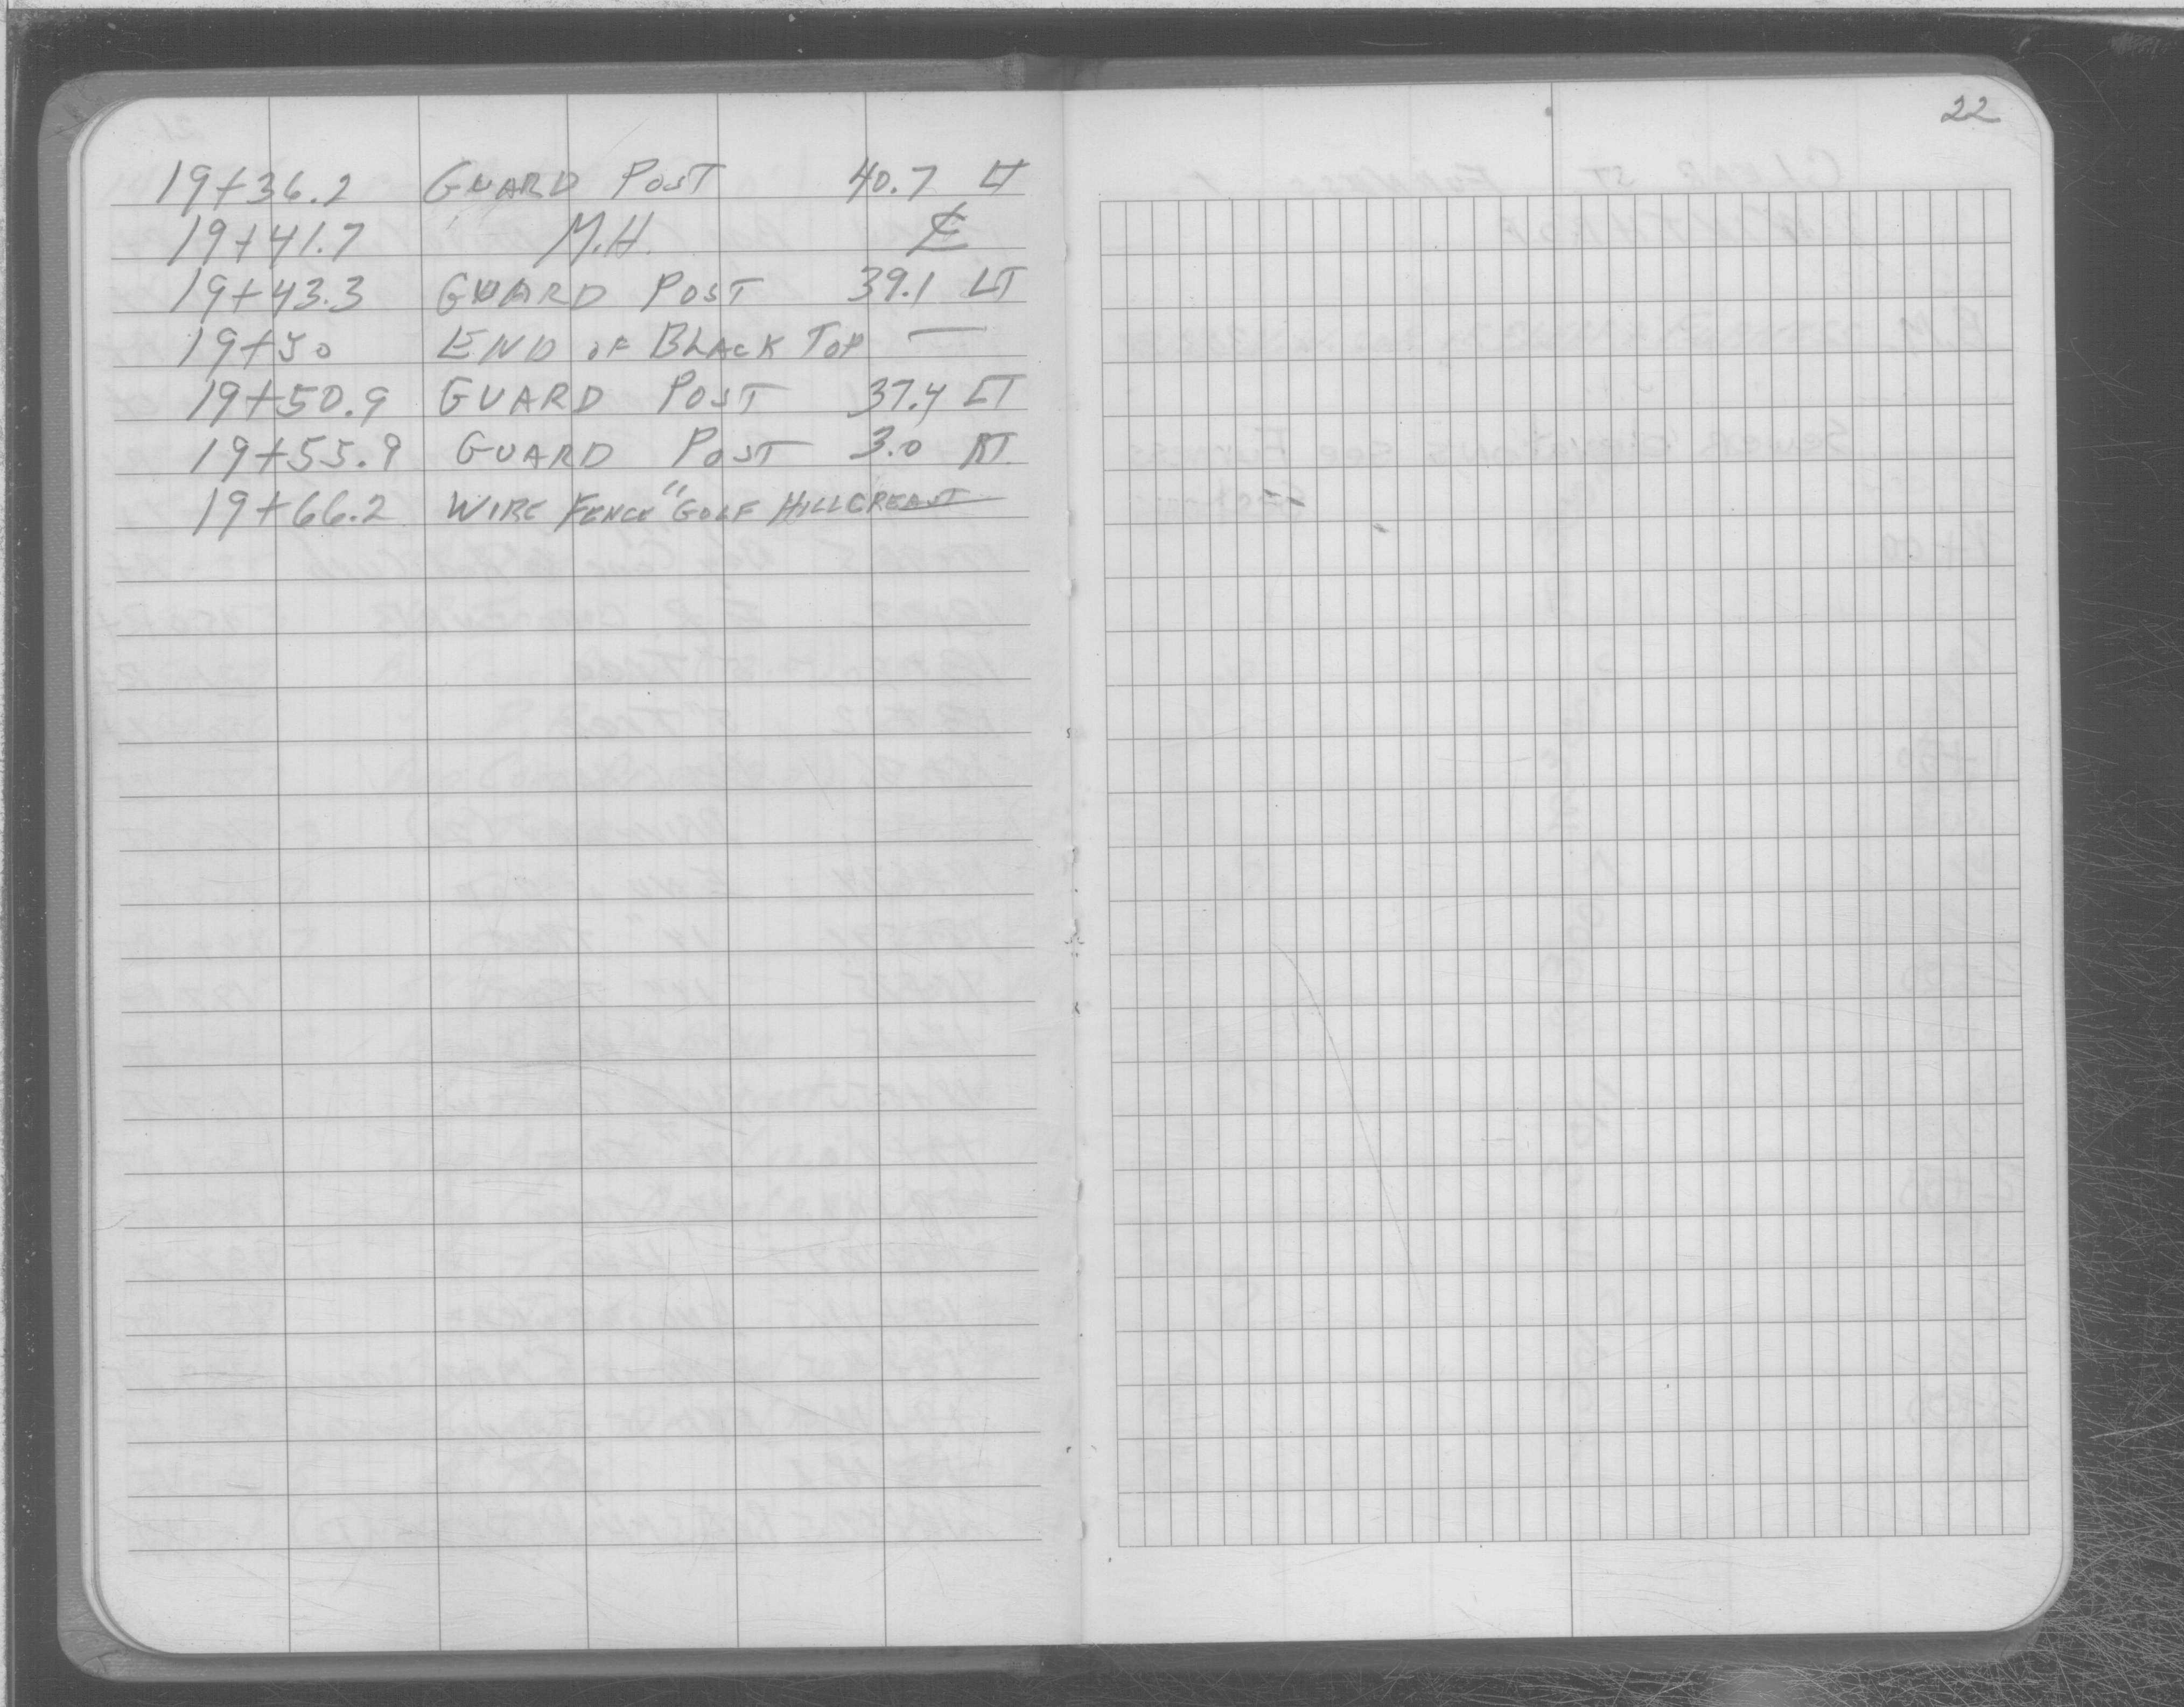 22
19+36.2 GUARD POST 40.7 LT
19+41.7 M.H. ℄
19+43.3 GUARD POST 39.1 LT
19+50 END OF BLACK TOP —
19+50.9 GUARD POST 37.4 LT
19+55.9 GUARD POST 3.0 RT
19+66.2 WIRE FENCE "GOLF HILLCREAST